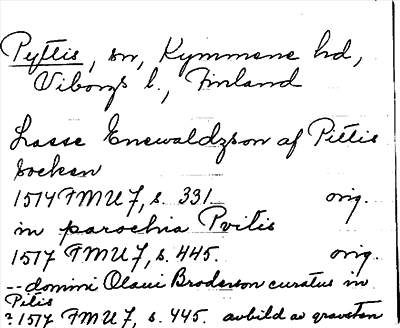 Pyttis, sn, Kymmene hd,
Viborgs l., Finland
Lasse Enewaldzson af Pittis
socken
1514 FMU 7, s. 331 orig.
in parochia Pvitis
1517 FMU 7, s. 445. orig.
-- domini Olaui Broderson curatus in
Pitis
?1517 FMU 7, s. 445. avbild av gravsten